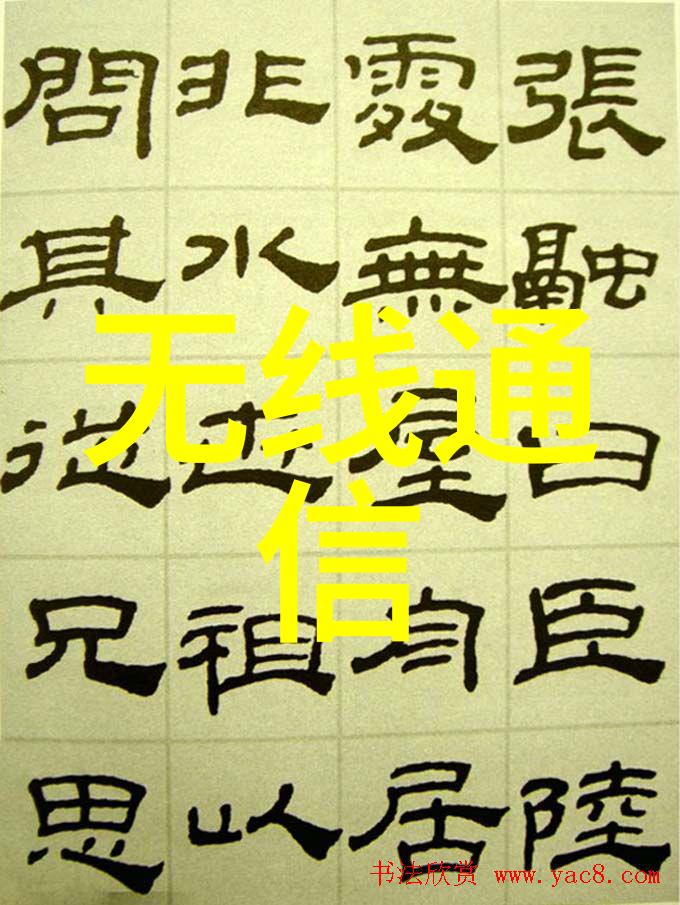 張融曰臣陸
處無屋舟居
非水也祖以
問其從兄思
无线通
信
书法欣赏 www.yac8.com